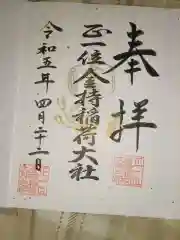 奉拝
正一位金持稲荷大社
令和五年四月二十一日